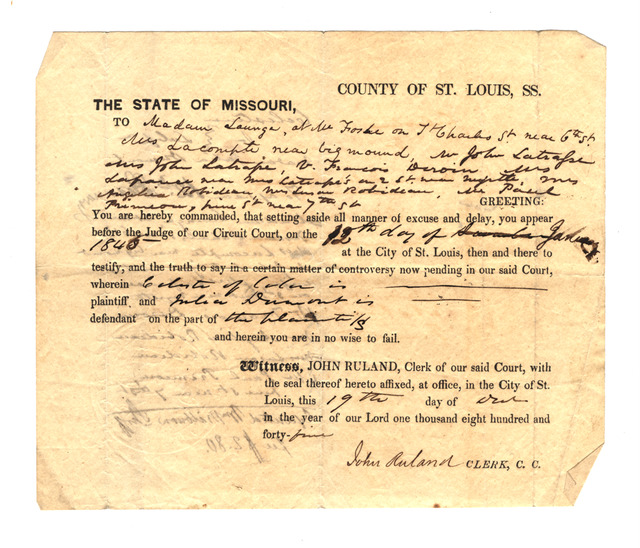 COUNTY OF ST. LOUIS, SS.
THE STATE OF MISSOURI,
TO Madam Lounge, at Mr Foshe on St Charles St near 6th St
Mrs Lacompte near big mound, Mr John
Mrs John V. Francois Mrs
near Mrs on 2 St. near Myrtle, Mrs
Robideau, Robideau, Mr Paul
GREETING:
Primeau, pine St near 7th St
You are hereby commanded, that setting aside all manner of excuse and delay, you appear
before the Judge of our Circuit Court, on the 12th day of
1845 at the City of St. Louis, then and there to
testify, and the truth to say in a certain matter of controversy now pending in our said Court,
wherein Celeste of Color is
plaintiff, and Julia Dumont is
defendant on the part of the plaintiff
and herein you are in no wise to fail.
Witness, JOHN RULAND, Clerk of our said Court, with
the seal thereof hereto affixed, at office, in the City of St.
Louis, this 19th day of
in the year of our Lord one thousand eight hundred and
forty-five
John Ruland CLERK, C. C.